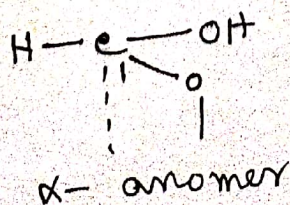 H — C — OH
O
α- anomer